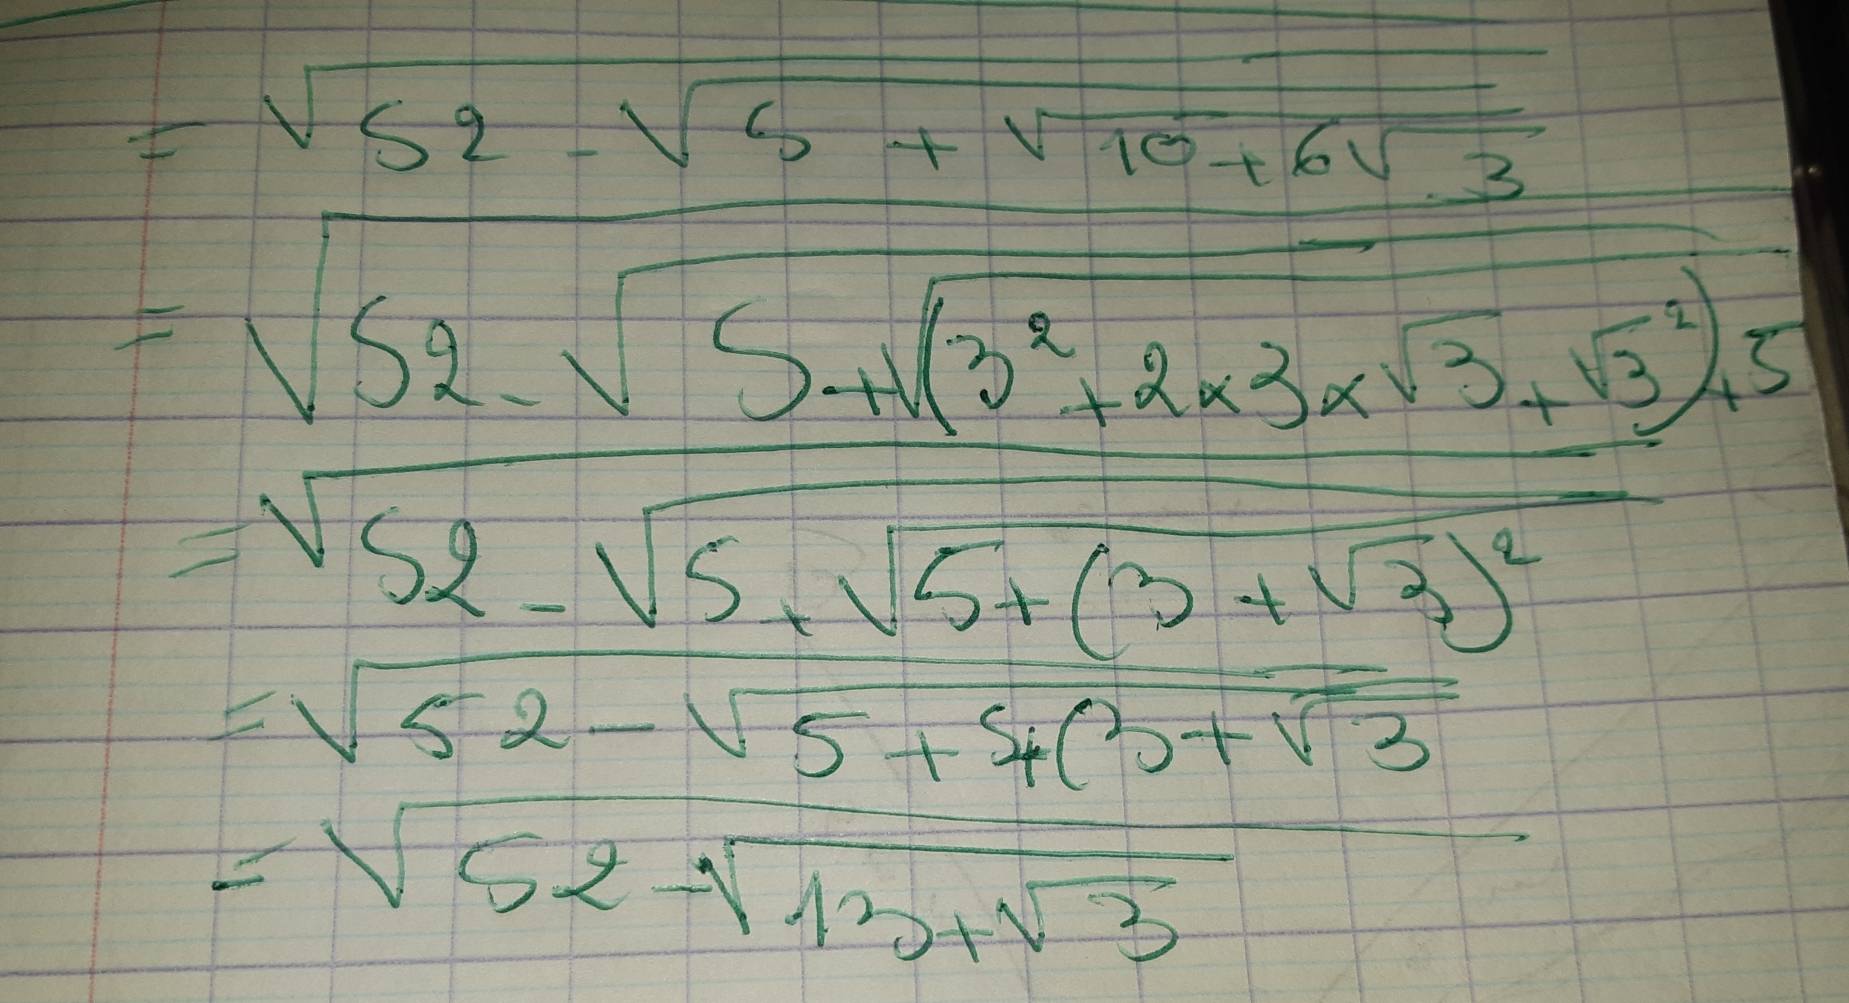 = √(52 - √(5 + √(10 + 6√3)))
= √(52 - √(5 + √((3² + 2 × 3 × √3 + √3²) + 5)))
= √(52 - √(5 + √(5 + (3 + √3)²)))
= √(52 - √(5 + 5 + (3 + √3
= √(52 - √(13 + √3))